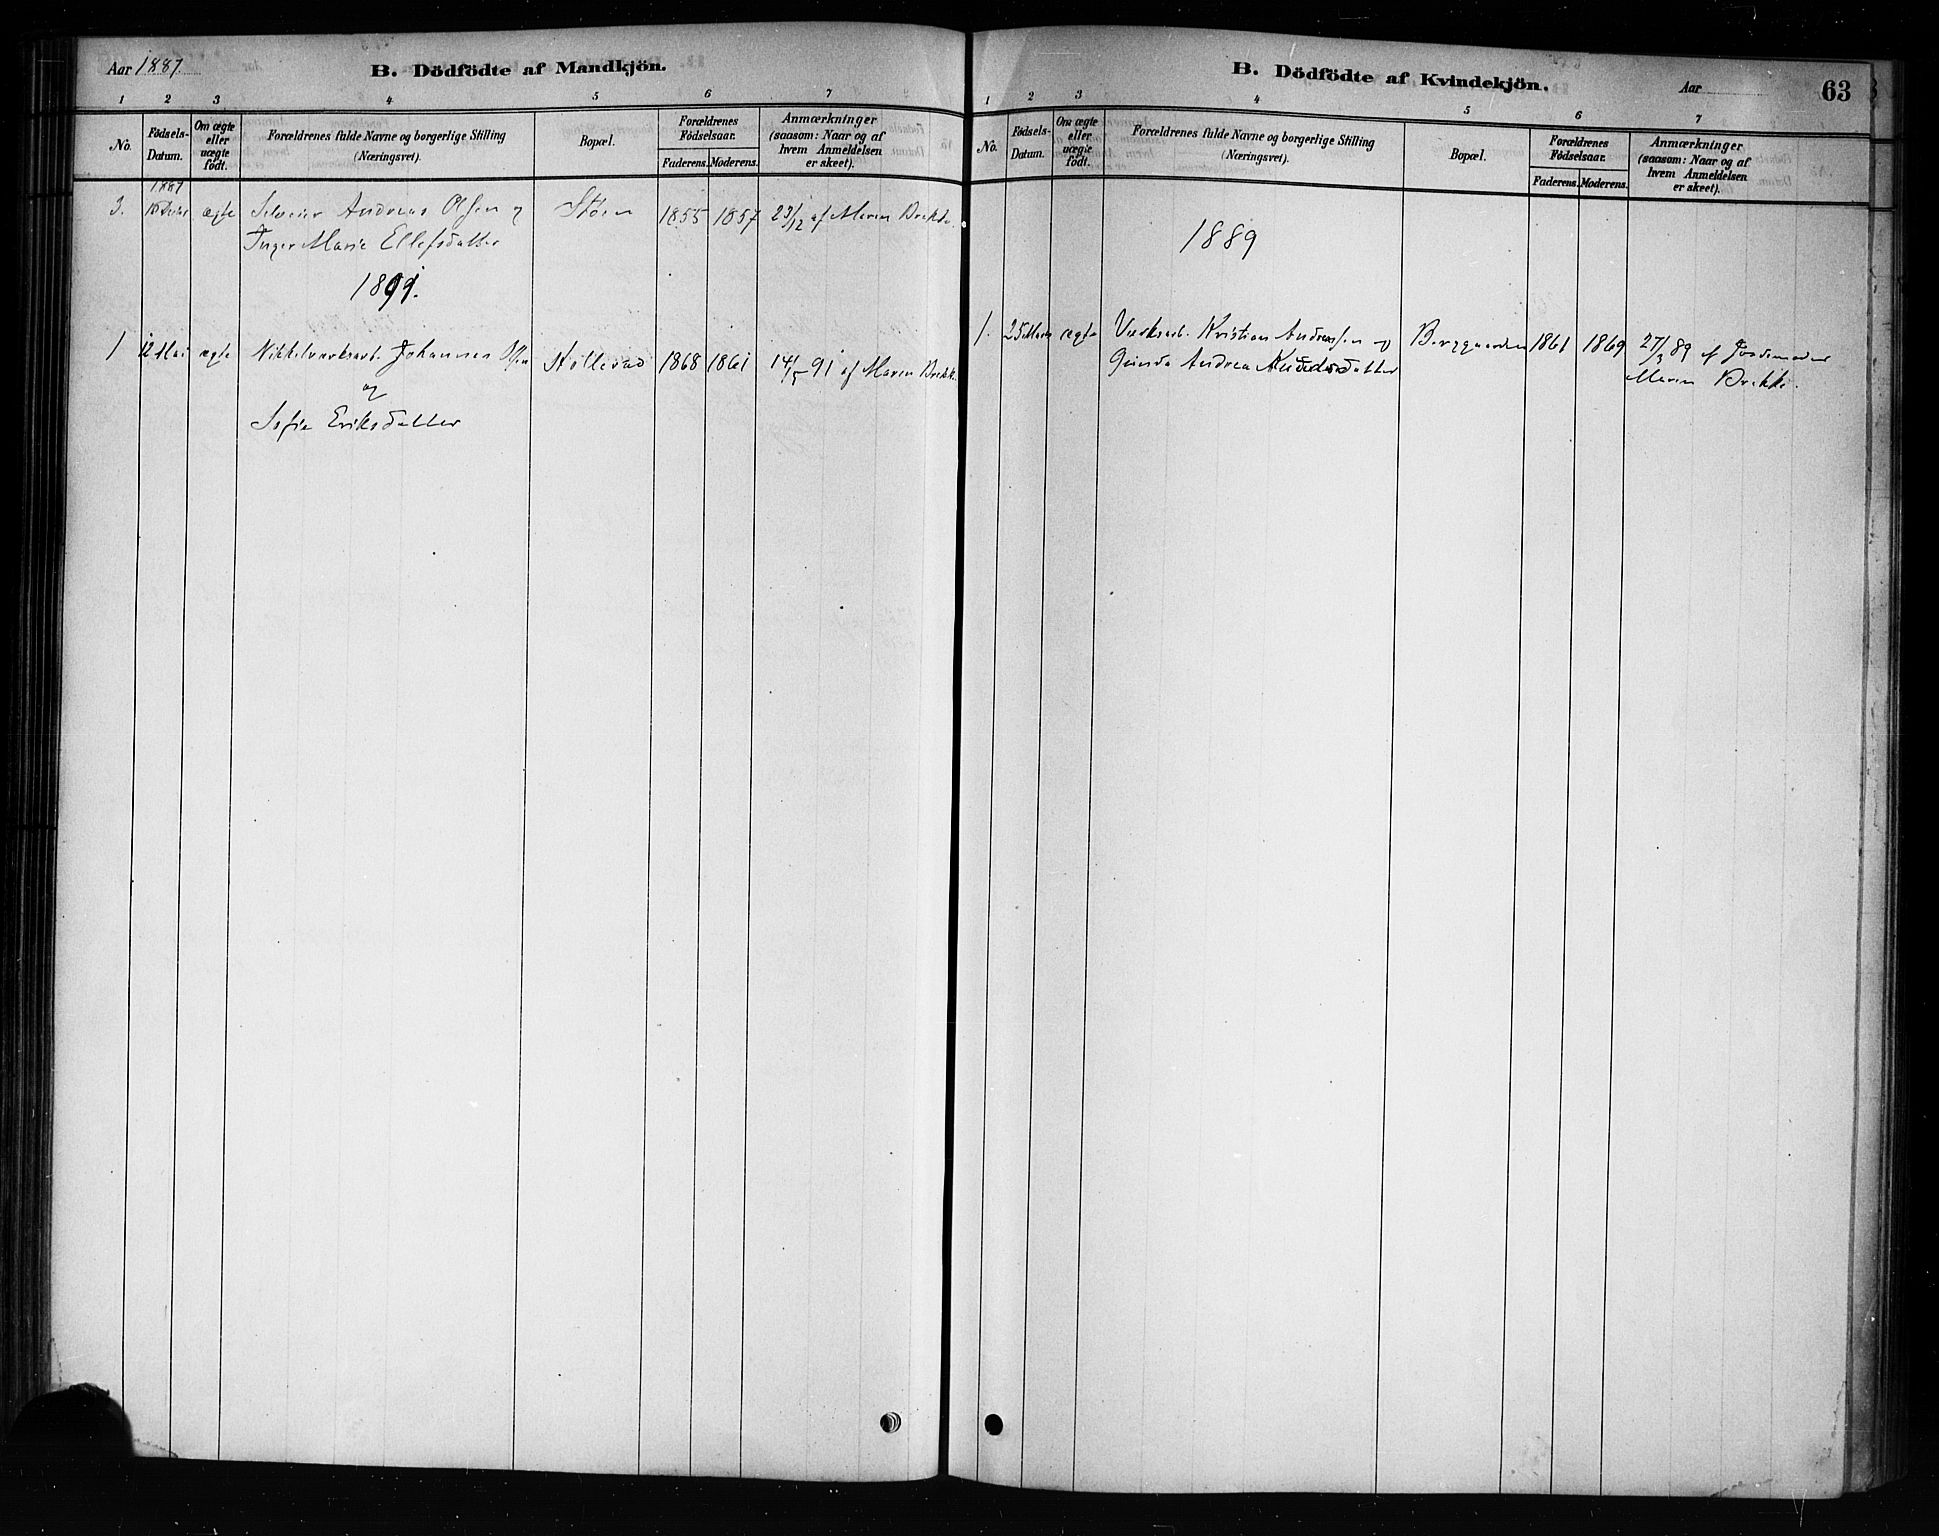 Aar 1887
B. Dödfödte af Mandkjön.
1 2 3 4 5 6 7
No. Födsels-Datum. Om ægte eller uægte födt. Forældrenes fulde Navne og borgerlige Stilling (Næringsvei). Bopæl. Forældrenes Födselsaar. Faderens. Moderens. Anmærkninger (saasom: Naar og af hvem Anmeldelsen er skeet).
1887
3. ægte Andreas Olsen og Støen 1855 1857 23/12 af Maren Brekke.
Inger Marie Ellefsdatter
1891.
1 12 Mai ægte Nikkelverksarb. Johannes Olsen Stollerud 1868 1861 14/5 91 af Maren Brekke.
og
Sofie Eriksdatter
B. Dödfödte af Kvindekjön.
Aar
63
1 2 3 4 5 6 7
No. Födsels-Datum. Om ægte eller uægte födt. Forældrenes fulde Navne og borgerlige Stilling (Næringsvei). Bopæl. Forældrenes Födselsaar. Faderens. Moderens. Anmærkninger (saasom: Naar og af hvem Anmeldelsen er skeet).
1889
1. 25 Marts ægte Verksarb. Kristian Andreassen og Berggaarden 1861 1869 27/3 89 af Jordemoder
Gunda Andrea Maren Brekke.